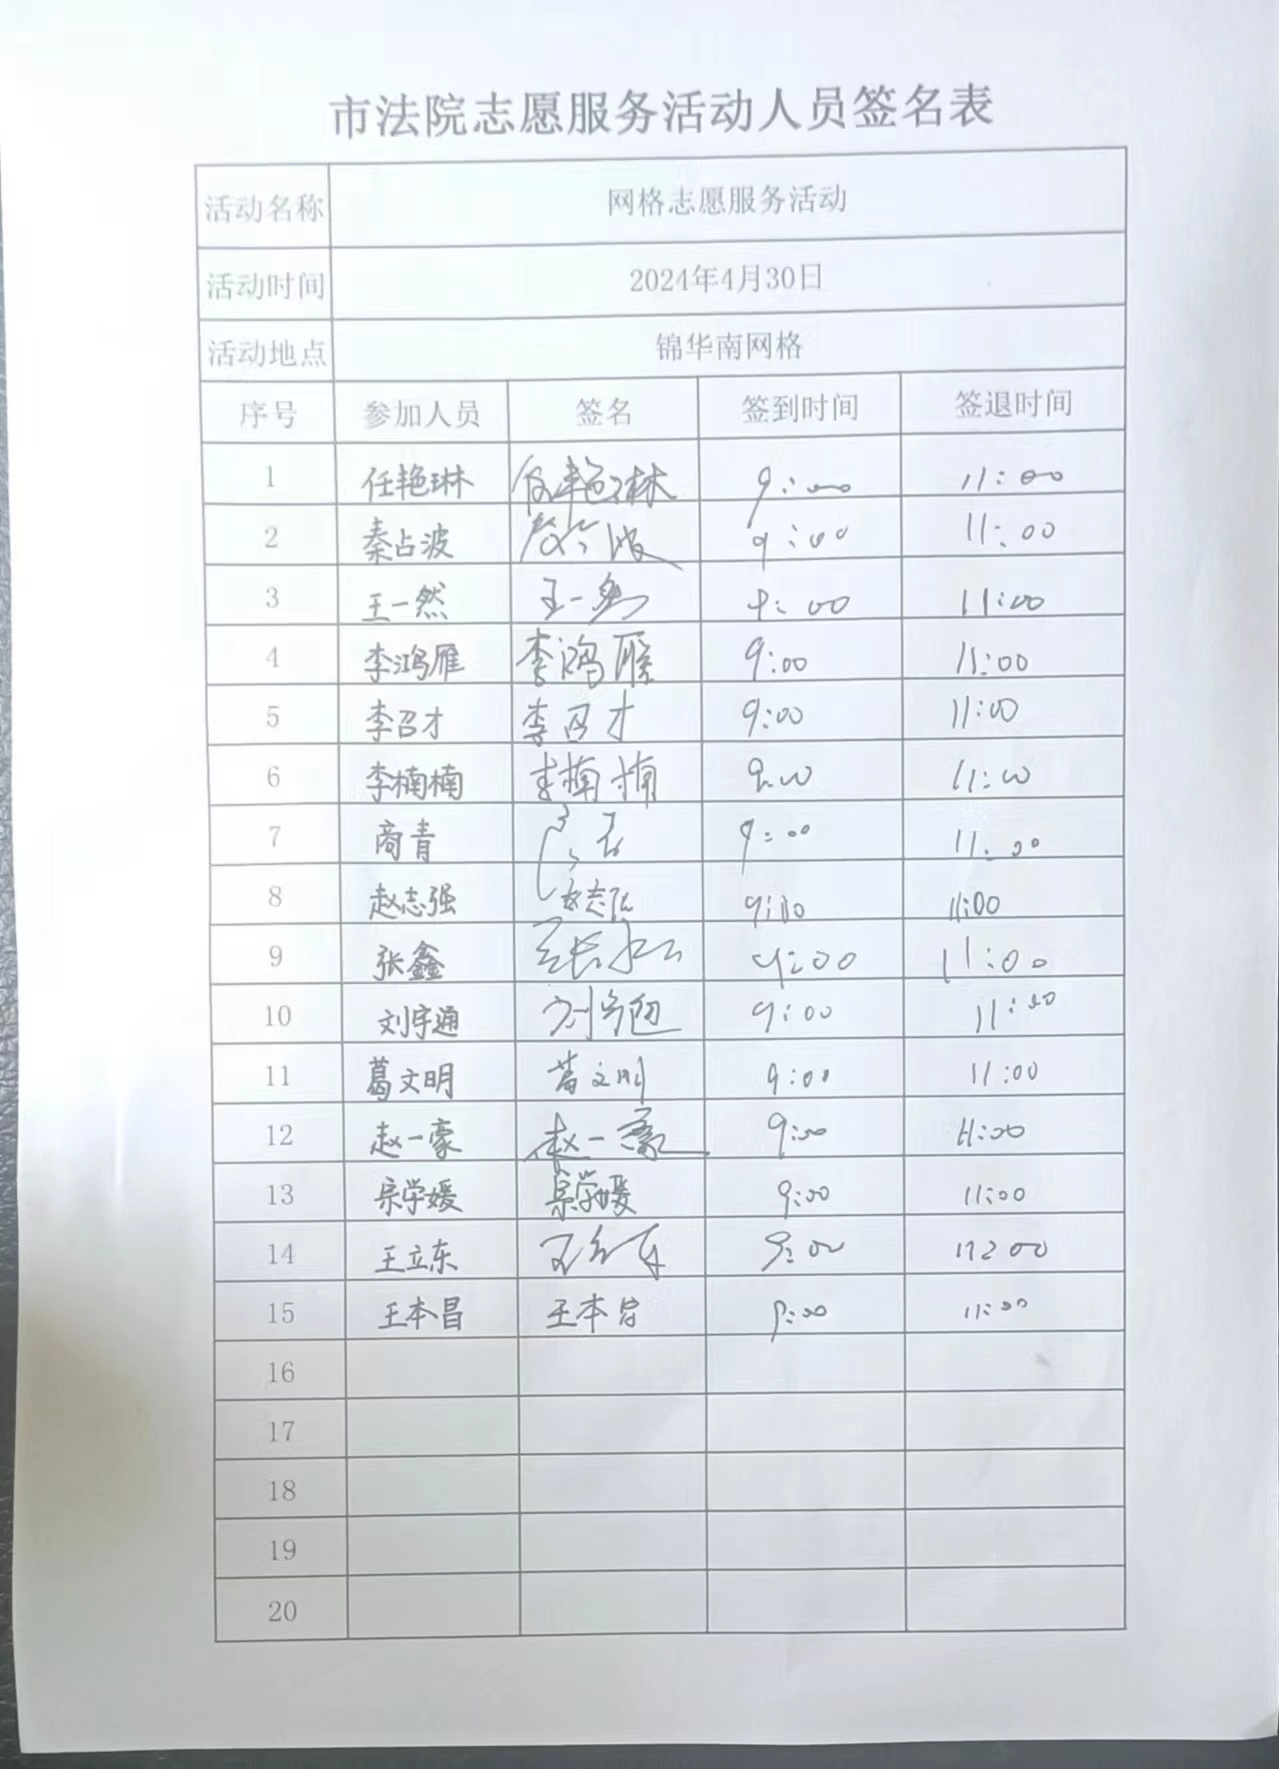 市法院志愿服务活动人员签名表
活动名称 网格志愿服务活动
活动时间 2024年4月30日
活动地点 锦华南网格
序号 参加人员 签名 签到时间 签退时间
1 任艳琳 任艳琳 9:00 11:00
2 秦占波 秦占波 9:00 11:00
3 王一然 王一然 9:00 11:00
4 李鸿雁 李鸿雁 9:00 11:00
5 李召才 李召才 9:00 11:00
6 李楠楠 李楠楠 9:00 11:00
7 商青 9:00 11:00
8 赵志强 赵志强 9:00 11:00
9 张鑫 9:00 11:00
10 刘宇通 刘宇通 9:00 11:00
11 葛文明 葛文明 9:00 11:00
12 赵一豪 赵一豪 9:00 11:00
13 宗学媛 宗学媛 9:00 11:00
14 王立东 王立东 9:00 11:00
15 王本昌 王本昌 9:00 11:00
16
17
18
19
20